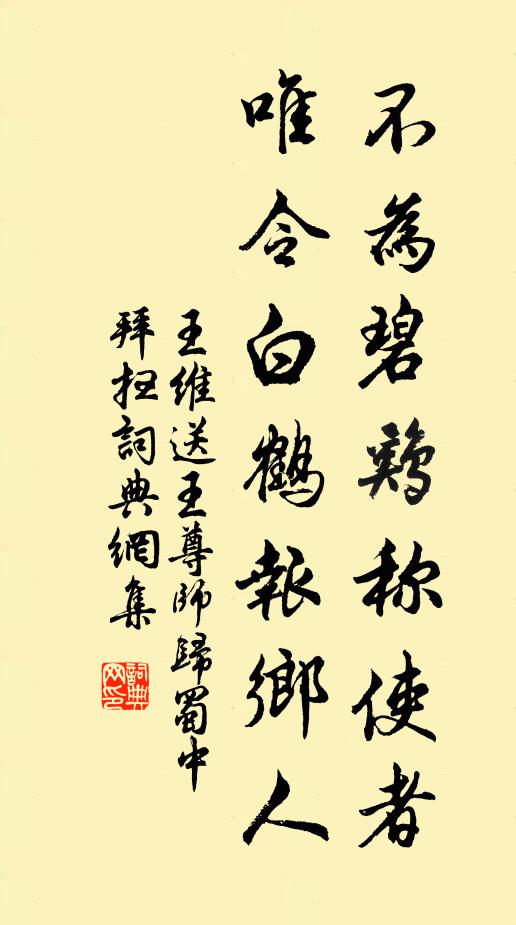 不為碧鷄称使者
唯令白鶴報鄉人
王維送王尊師歸蜀中
拜扫詞典網集
詞典網印